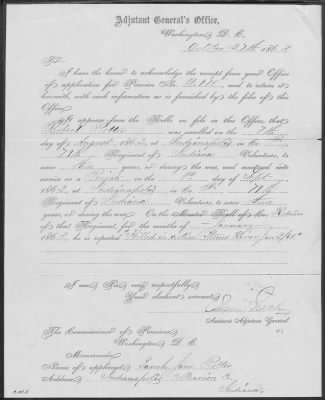 Adjutant General's Office,
Washington, D. C.
October 27th 1863.
Sir:
I have the honor to acknowledge the receipt from your Office
of application for Pension No. and to return it
herewith, with such information as is furnished by the files of this
Office.
It appears from the Rolls on file in this Office, that
Robert was enrolled on the 7th
day of August, 1862, at Indianapolis in Co.
Regiment of Indiana Volunteers, to
serve three years, or during the war, and mustered into
service as a Private on the day of Sept.
1862, at Indianapolis in Co.
Regiment of Indiana Volunteers, to serve three
years, or during the war. On the Muster Roll of Co. Return
of that Regiment, for the months of
January
186 , he is reported "Killed in action Stone River Jan 2/63"
I am Sir, very respectfully,
Your obedient servant,
Assistant Adjutant General
The Commissioner of Pensions,
Washington, D. C.
Memoranda:
Name of applicant, Sarah Jane
Address, Indianapolis Marion Co.
Indiana